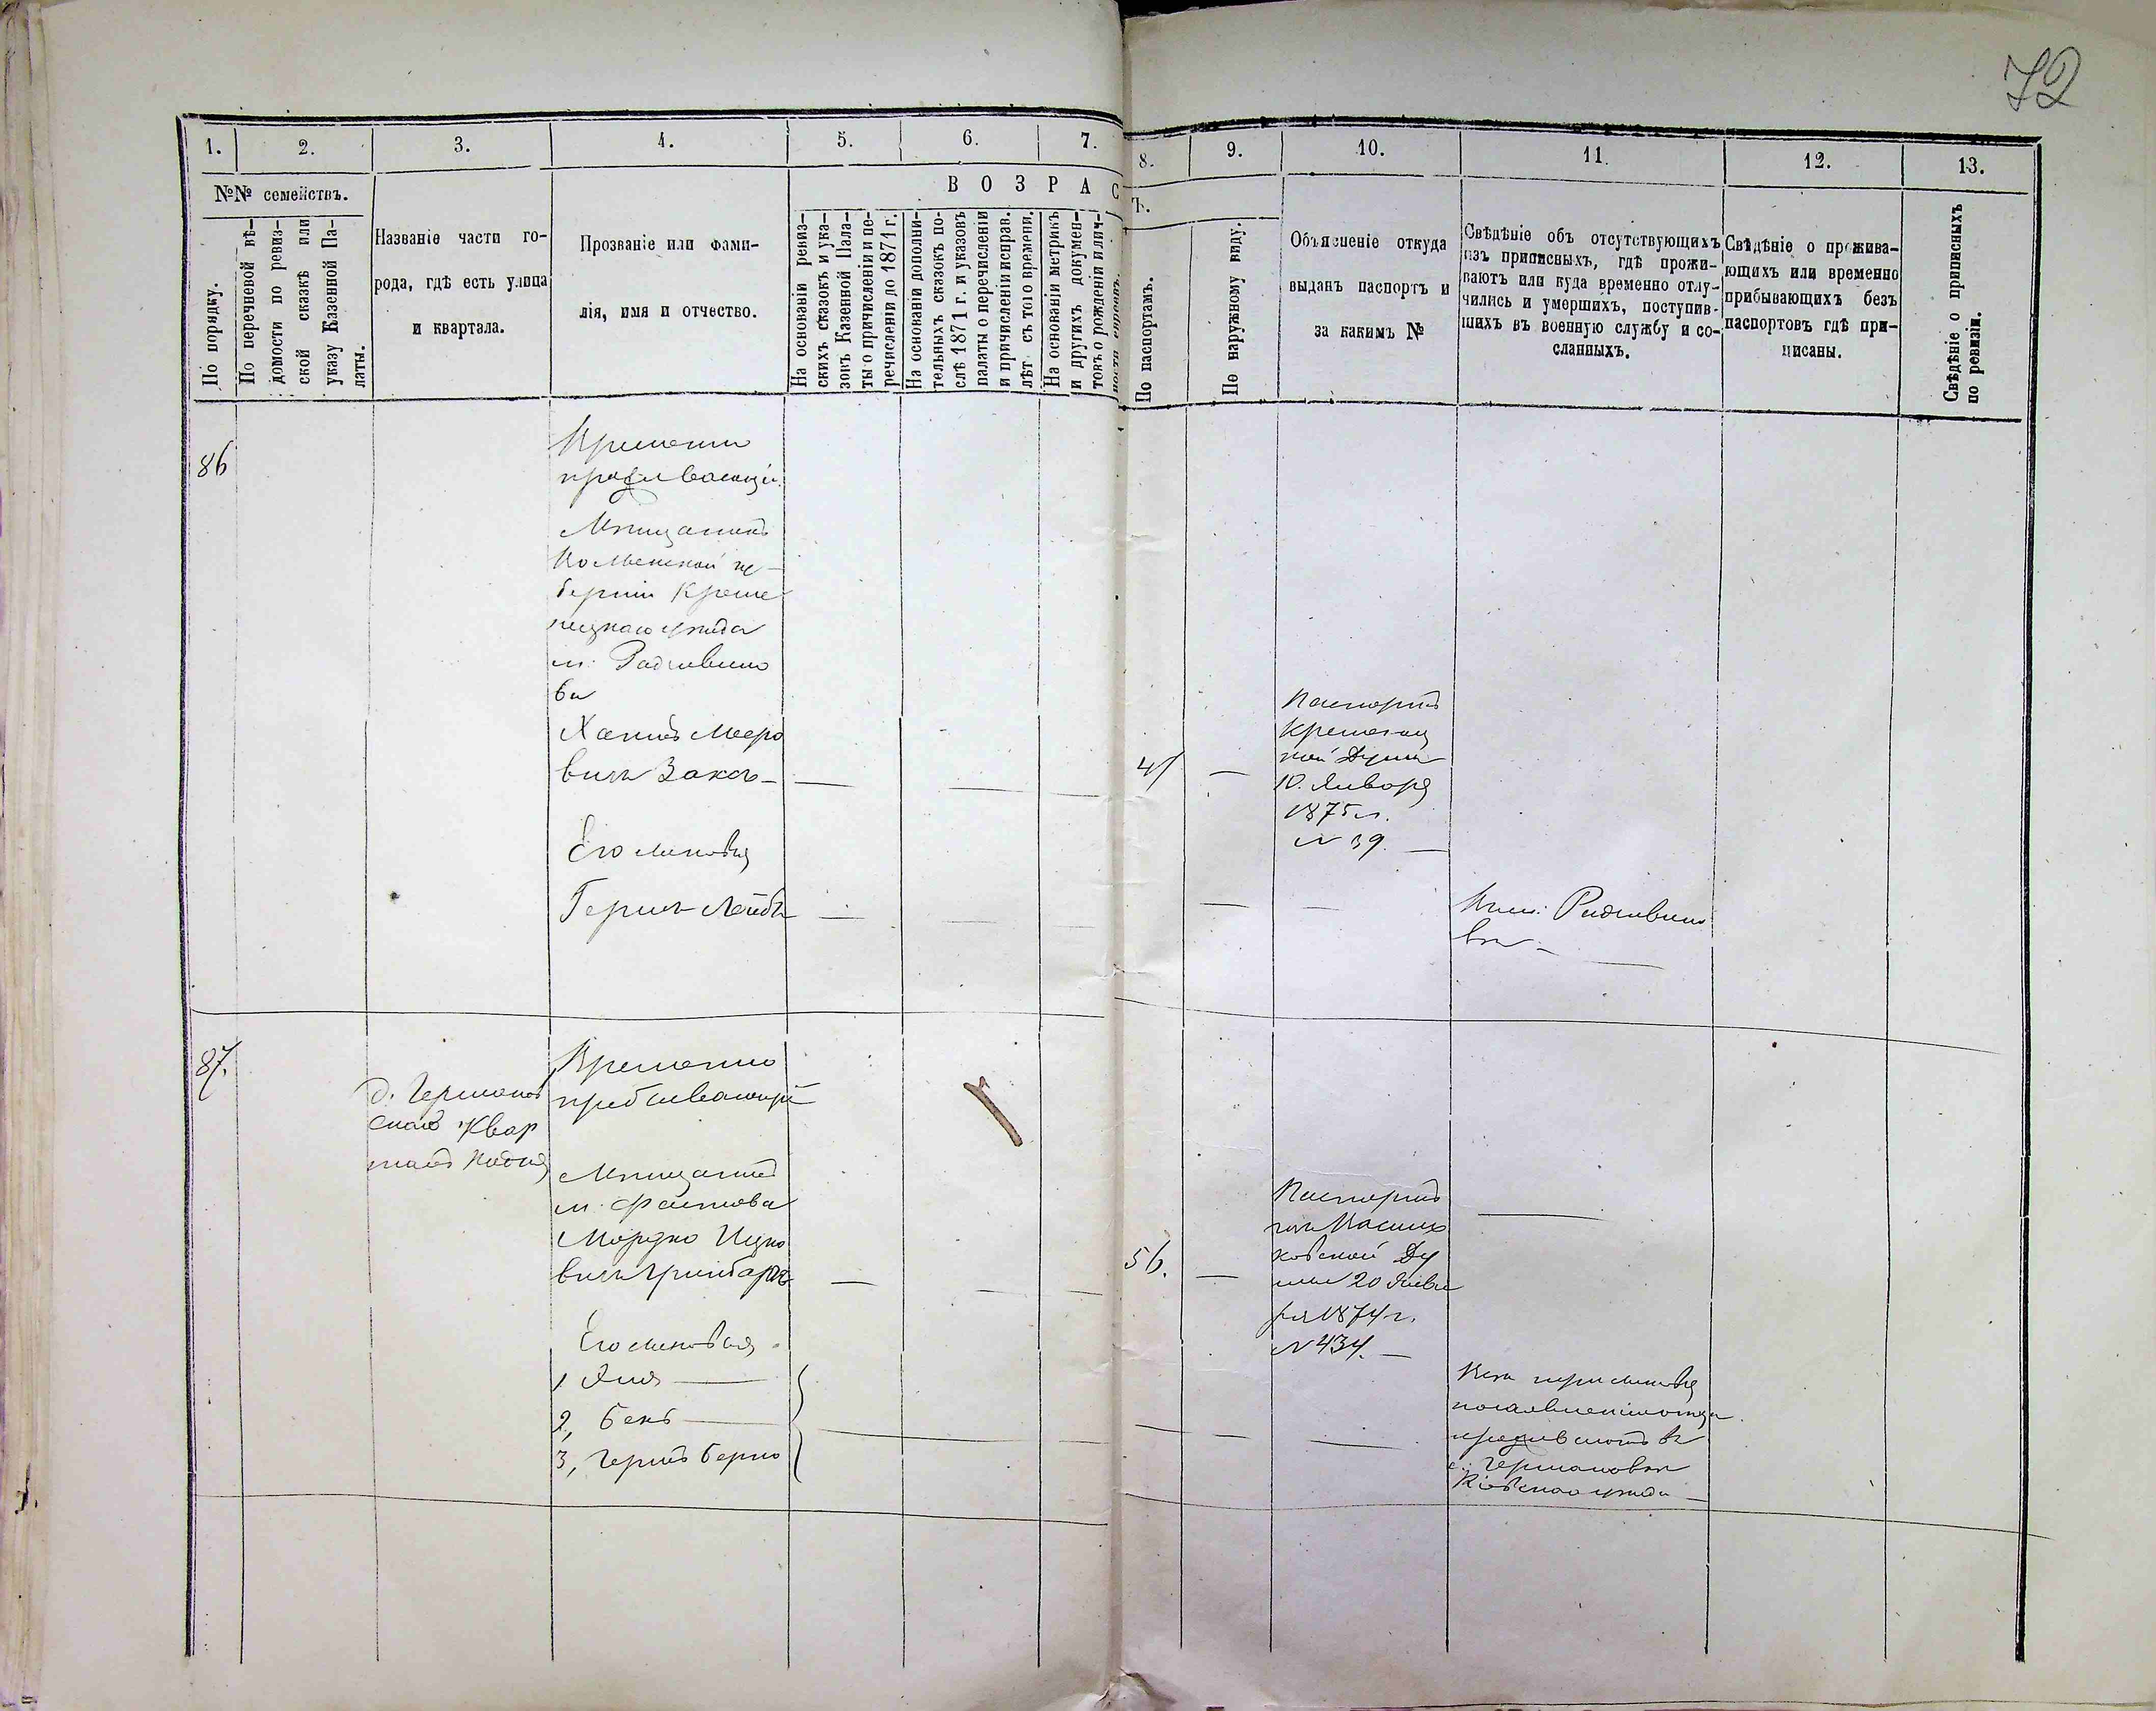 72
1. 2. 3. 4. 5. 6. 7. 8. 9. 10. 11. 12. 13.
№№ семействъ.
По порядку.
По перечневой вѣ-
домости по ревиз-
ской сказкѣ или
указу Казенной Па-
латы.
Названіе части го-
рода, гдѣ есть улица
и квартала.
Прозваніе или фами-
лія, имя и отчество.
ВОЗРАСТЪ.
На основаніи ревиз-
скихъ сказокъ и ука-
зовъ Казенной Пала-
ты о причисленіи и пе-
речисленіи до 1871 г.
На основаніи дополни-
тельныхъ сказокъ по-
слѣ 1871 г. и указовъ
палаты о перечисленіи
и причисленіи исправ.
лѣт съ того времени.
На основаніи метрикъ
и другихъ докумен-
товъ о рожденіи и лич-
По паспортамъ.
По наружному виду.
Объясненіе откуда
выданъ паспортъ и
за какимъ №
Свѣдѣніе объ отсутствующихъ
изъ приписныхъ, гдѣ прожи-
ваютъ или куда временно отлу-
чились и умершихъ, поступив-
шихъ въ военную службу и со-
сланныхъ.
Свѣдѣніе о прожива-
ющихъ или временно
прибывающихъ безъ
паспортовъ гдѣ при-
писаны.
Свѣдѣніе о приписныхъ
по ревизіи.
86
Временно
проживающій
Мѣщанинъ
Волынской гу-
берніи Креме
нецкаго уѣзда
м. Радзивило
ва
Хаимъ Мееро
вичъ Заксъ —
Его сыновья
Гершъ Лейба
Паспортъ
Кременец
кой Думы
10. Января
1875 г.
№ 39. —
В м. Радзивило
вѣ —
87.
д. Германов
скаго Квар
талъ
Временно
пребывающій
Мѣщанинъ
м. Фастова
Мордко Ицко
вичъ
56.
Паспортъ
изъ Василь
ковской Ду
мы 20 Янва
ря 1874 г.
№ 434. —
Его сыновья
1
2, Бенъ
3, Гершъ Берко
Всѣ три сыновья
по заявленію отца
проживаютъ въ
с. Германовкѣ
Кіевскаго уѣзда —